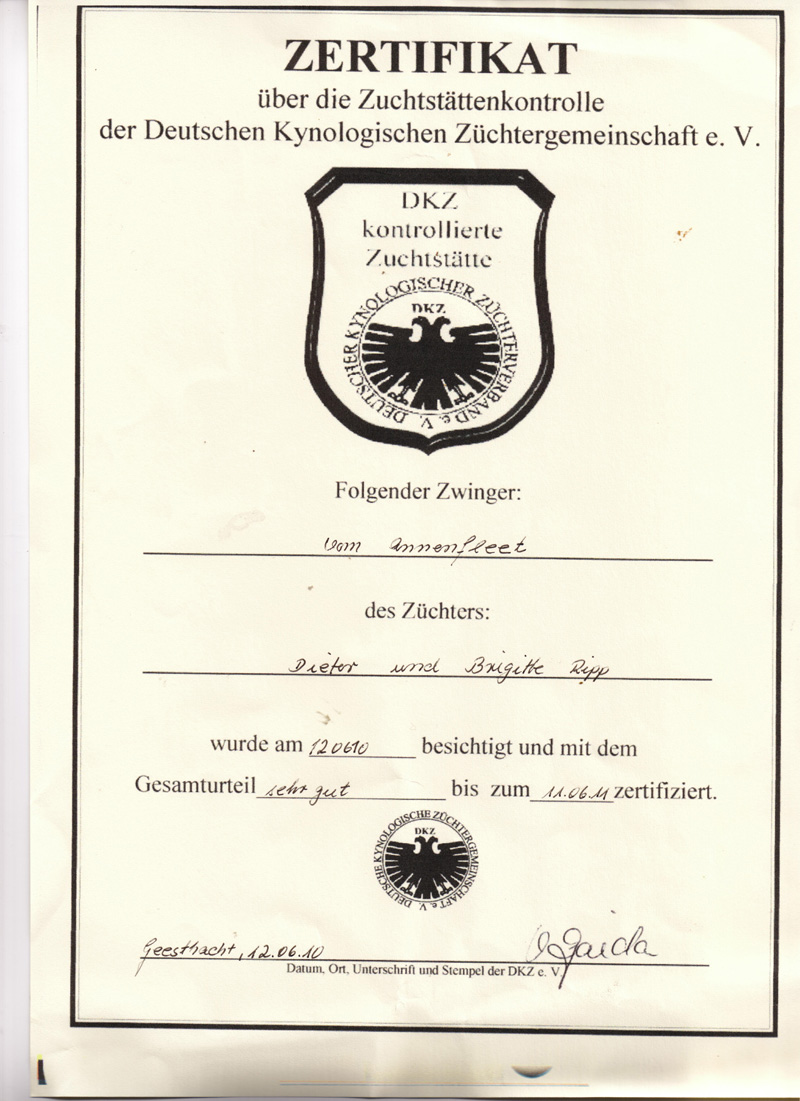 ZERTIFIKAT
über die Zuchtstättenkontrolle
der Deutschen Kynologischen Züchtergemeinschaft e. V.
DKZ
kontrollierte
Zuchtstätte
DEUTSCHER KYNOLOGISCHER ZÜCHTERVERBAND e. V.
DKZ
Folgender Zwinger:
vom Annenfleet
des Züchters:
Dieter und Brigitte Ripp
wurde am 120610 besichtigt und mit dem
Gesamturteil sehr gut bis zum 11.06.11 zertifiziert.
DEUTSCHE KYNOLOGISCHE ZÜCHTERGEMEINSCHAFT e. V.
DKZ
Geesthacht, 12.06.10 Gaida
Datum, Ort, Unterschrift und Stempel der DKZ e. V.